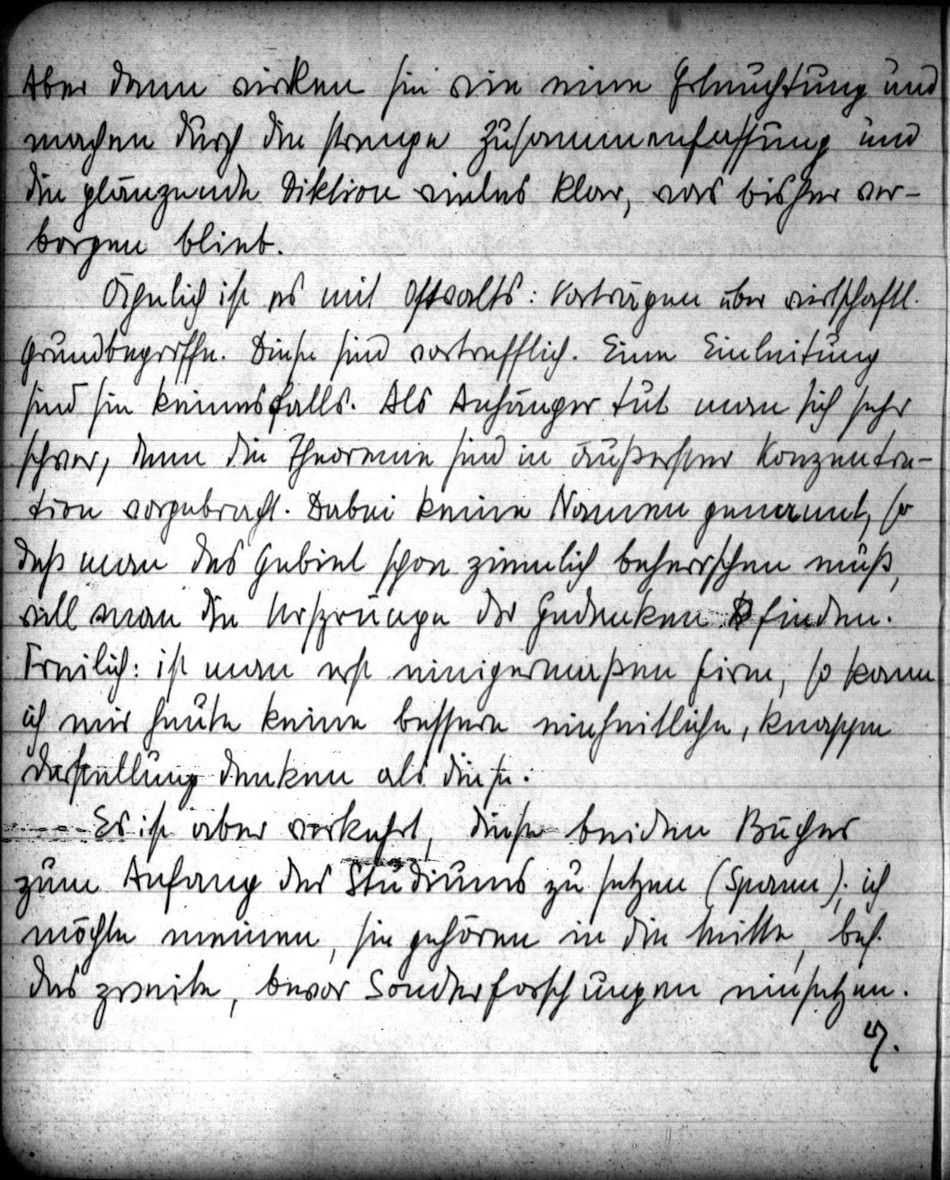 Aber dann wirken sie wie eine Erleuchtung und
machen durch die strenge Zusammenfassung und
die glänzende Diktion vieles klar, was bisher ver-
borgen blieb.
Ähnlich ist es mit Oßwalts: Vorträgen über wirtschaftl.
Grundbegriffe. Diese sind vortrefflich. Eine Einleitung
sind sie keinesfalls. Als Anfänger tut man sich sehr
schwer, denn die Theoreme sind in äußerster Konzentra-
tion vorgebracht. Dabei keine Namen genannt, so
daß man das Gebiet schon ziemlich beherrschen muß,
will man die Ursprünge der Gedanken finden.
Freilich: ist man erst einigermaßen firm, so kann
ich mir heute keine bessere einheitliche, knappe
Darstellung denken als diese.
Es ist aber verkehrt, diese beiden Bücher
zum Anfang des Studiums zu setzen (Spann); ich
möchte meinen, sie gehören in die Mitte, bes.
das zweite, bevor Sonderforschungen einsetzen.